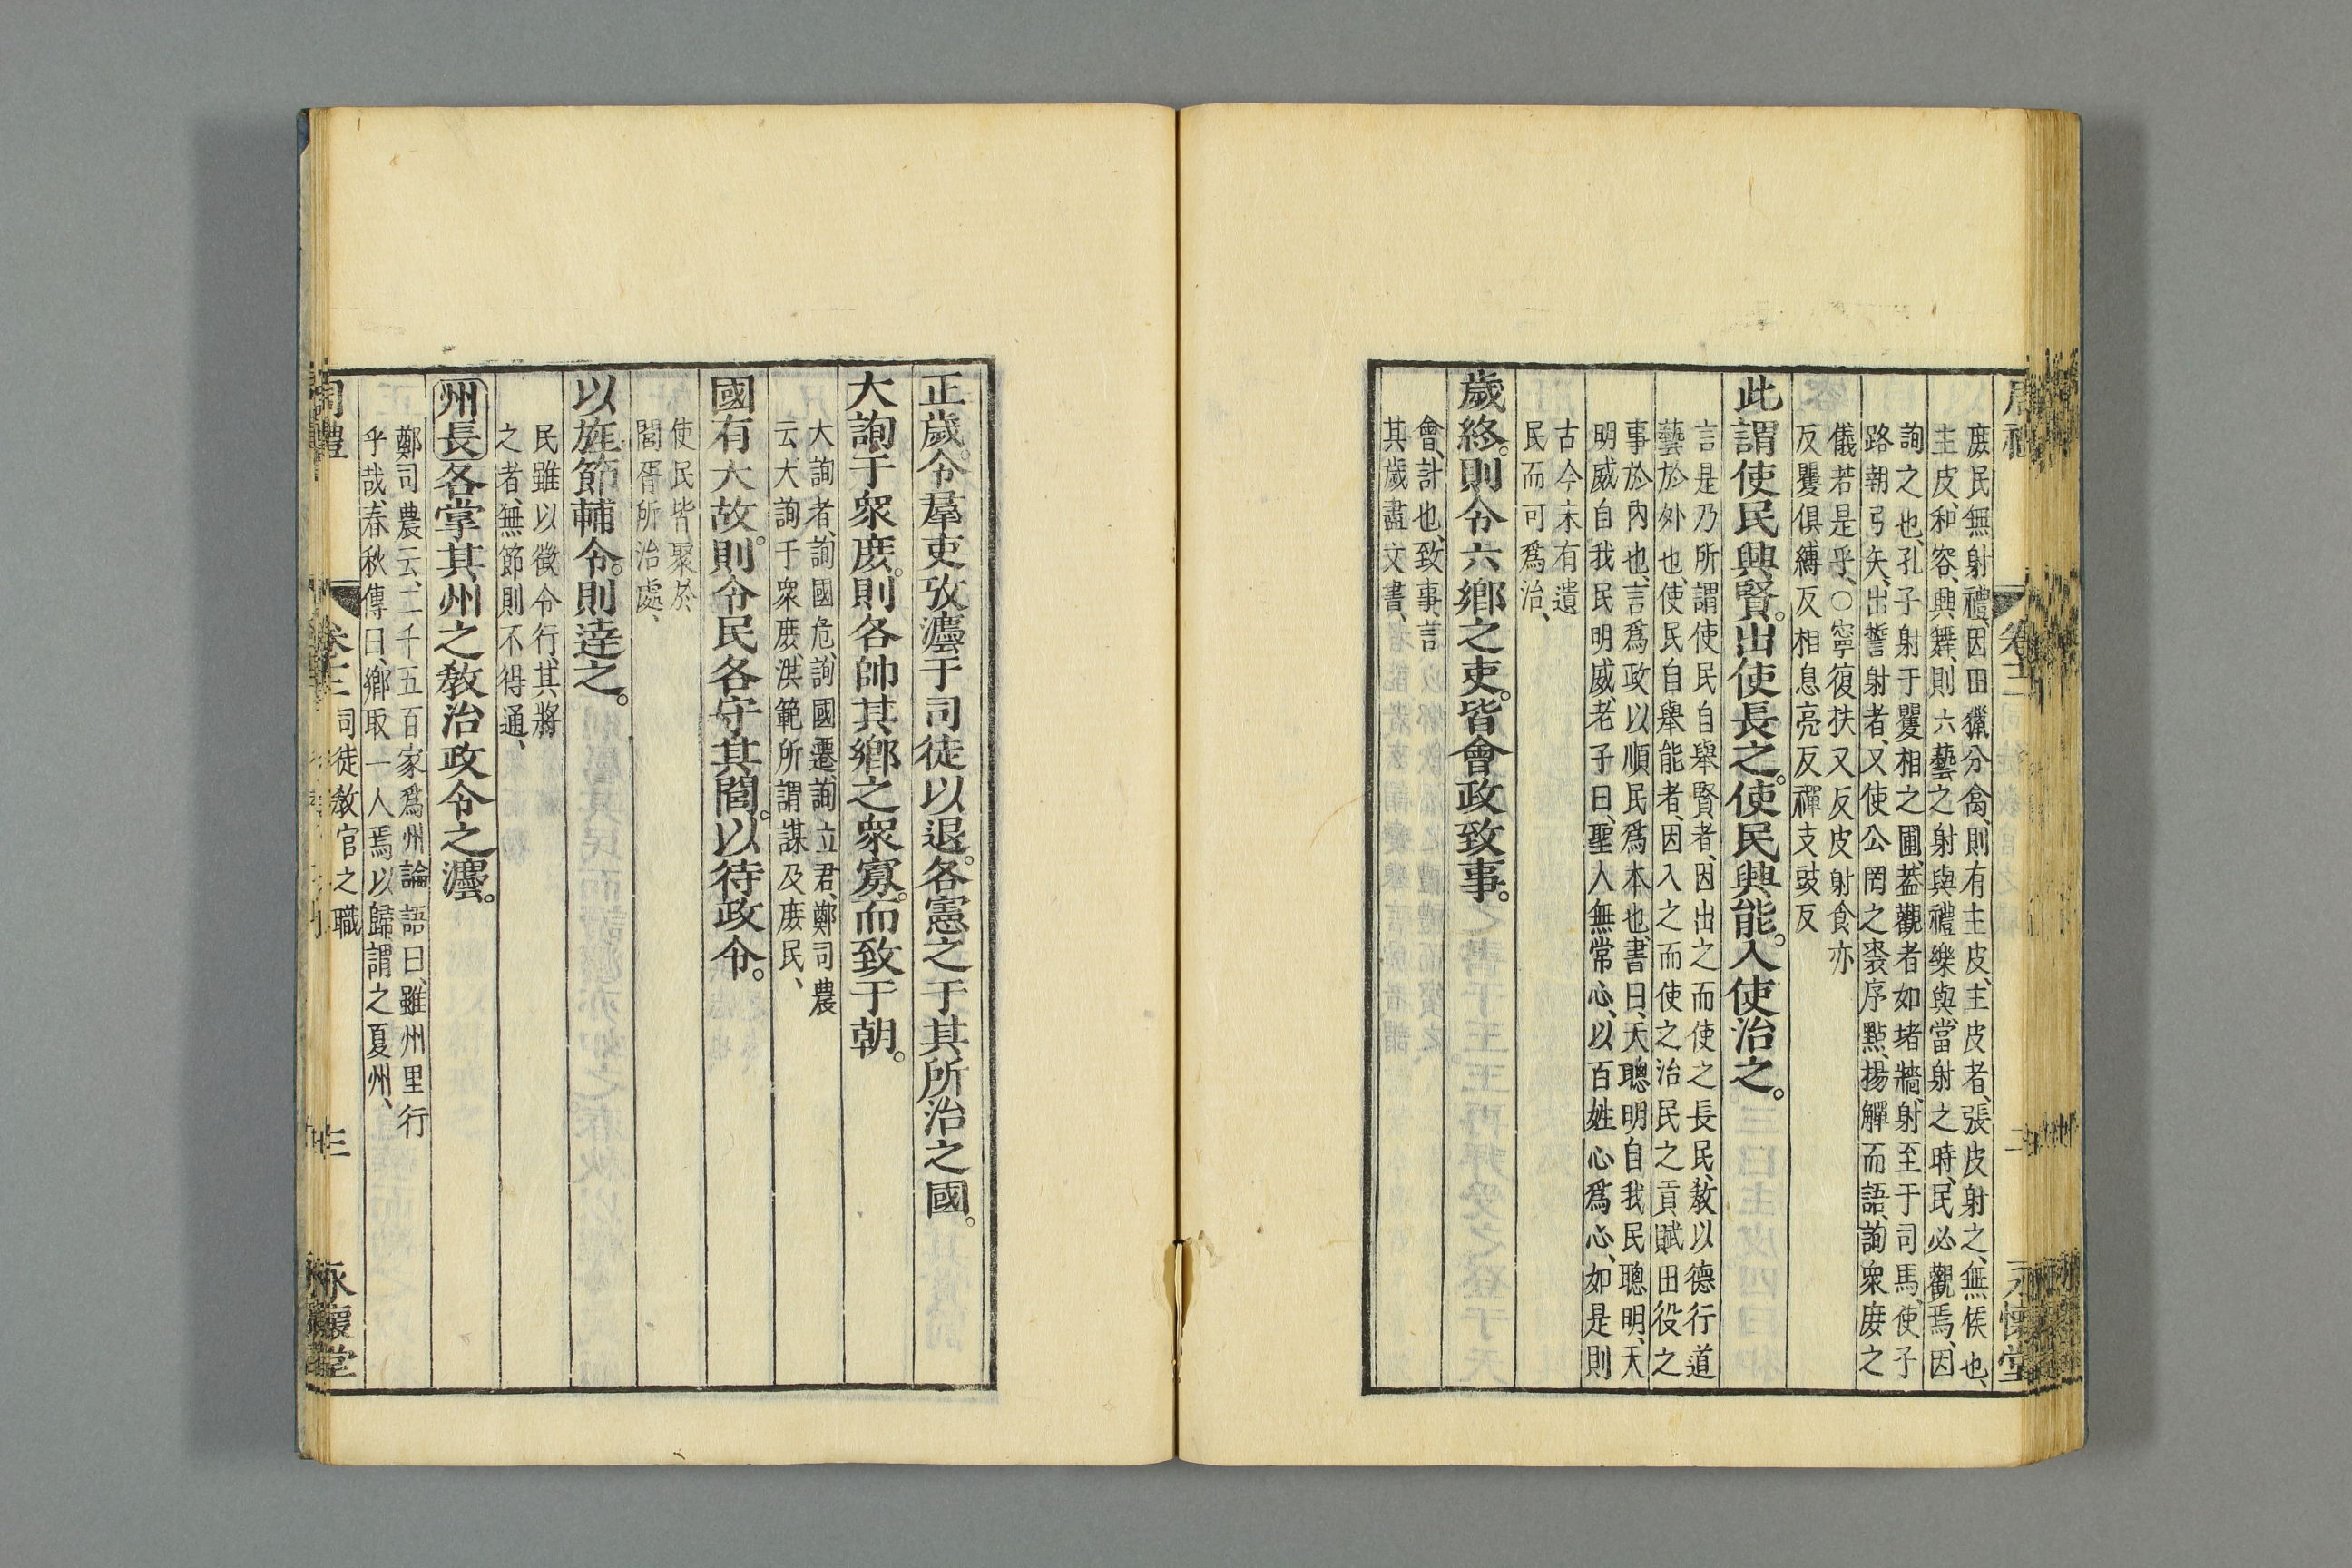 庻民無射禮、因田獵分禽、則有主皮、主皮者、張皮射之、無侯也、
主皮、和容、興舞、則六藝之射與禮樂與、當射之時、民必觀焉、因
詢之也、孔子射于矍相之圃、葢觀者如堵牆、射至于司馬、使子
路執弓矢、出誓射者、又使公罔之裘、序㸃、揚觶而語、詢衆庻之
儀若是乎、○寧復扶又反皮射食亦
反矍俱縛反相息亮反禪支豉反
此謂使民興賢。出使長之。使民興能。入使治之。
言是乃所謂使民自舉賢者、因出之而使之長民、敎以德行道
藝於外也、使民自舉能者、因入之而使之治民之貢賦田役之
事於內也、言爲政以順民爲本也、書曰、天聰明自我民聰明、天
明威自我民明威、老子曰、聖人無常心、以百姓心爲心、如是則
古今未有遺
民而可爲治、
歲終。則令六鄉之吏。皆會政致事。
會、計也、致事、言
其歲盡文書、
正歲。令羣吏攷灋于司徒以退。各憲之于其所治之國。
大詢于衆庻。則各帥其鄉之衆寡。而致于朝。
大詢者、詢國危、詢國遷、詢立君、鄭司農
云、大詢于衆庻、洪範所謂謀及庻民、
國有大故。則令民各守其閭。以待政令。
使民皆聚於
閭胥所治處、
以旌節輔令。則逹之。
民雖以徵令行、其將
之者、無節則不得通、
州長各掌其州之敎治政令之灋。
鄭司農云、二千五百家爲州論語曰、雖州里行
乎哉、春秋傳曰、鄉取一人焉以歸謂之夏州、
周禮 卷十二 司徒敎官之職 永懷堂